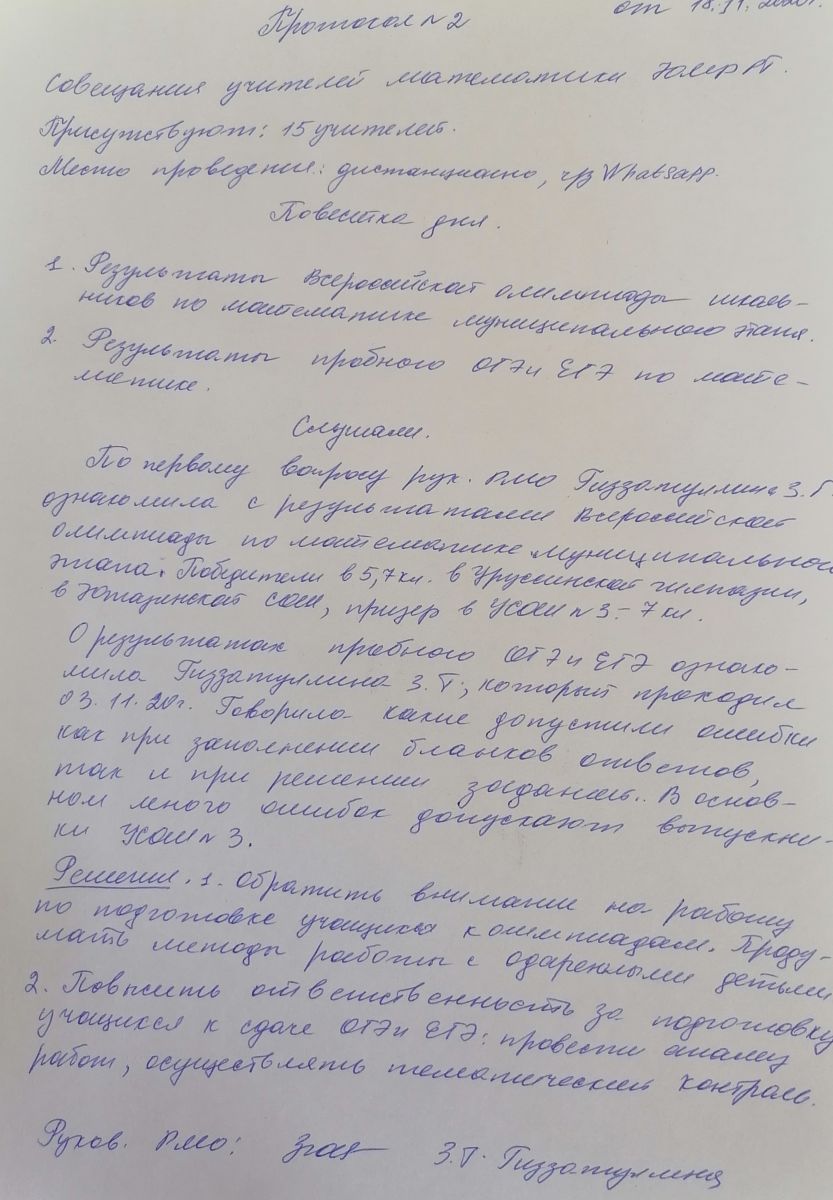 Протокол № 2 от 18.11.2020г.
Совещания учителей математики ЮМР РТ.
Присутствуют: 15 учителей.
Место проведения: дистанционно, чрз WhatsApp.
Повестка дня.
1. Результаты Всероссийской олимпиады школь-
ников по математике муниципального этапа.
2. Результаты пробного ОГЭ и ЕГЭ по мате-
матике.
Слушали.
По первому вопросу рук. РМО Гиззатуллина З.Г
ознакомила с результатами Всероссийской
олимпиады по математике муниципального
этапа. Победители в 5,7 кл. в Уруссинской гимназии,
в Ютазинской СОШ, призер в УСОШ №3 - 7 кл.
О результатах пробного ОГЭ и ЕГЭ ознако-
мила Гиззатуллина З.Г., который проходил
03.11.20г. Говорила какие допустили ошибки
как при заполнении бланков ответов,
так и при решении заданий. В основ-
ном много ошибок допускают выпускни-
ки УСОШ № 3.
Решение. 1. Обратить внимание на работу
по подготовке учащихся к олимпиадам. Проду-
мать методы работы с одаренными детьми
2. Повысить ответственность за подготовку
учащихся к сдаче ОГЭ и ЕГЭ: провести анализ
работ, осуществлять тематический контроль.
Руков. РМО: З.Г. Гиззатуллина